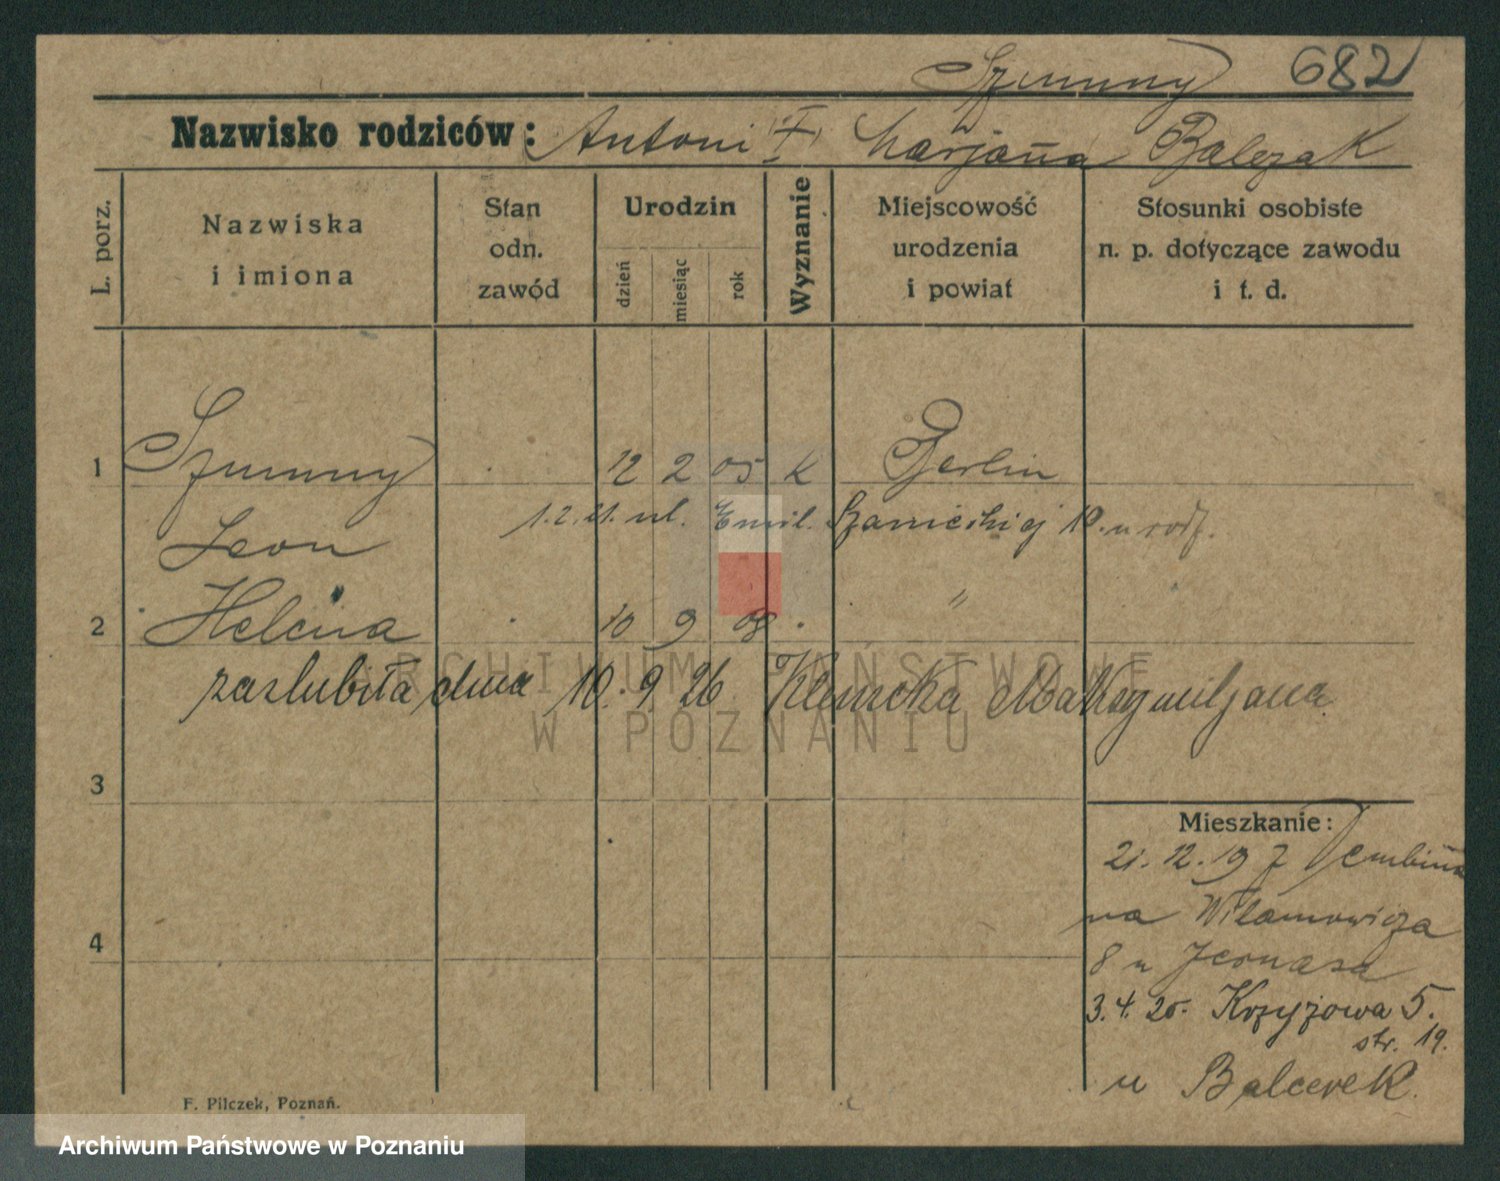 Szumny 682
Nazwisko rodziców: Antoni I Marjanna Balczak
L. porz.
Nazwiska
i imiona
Stan
odn.
zawód
Urodzin
dzień
miesiąc
rok
Wyznanie
Miejscowość
urodzenia
i powiat
Stosunki osobiste
n. p. dotyczące zawodu
i t. d.
1 Szumny 12 2 05 K Berlin
1.2.21. ul. Emil. Szanieckiej 10. u rodz.
Leon
2 Helena 10 9 08 "
zaslubiła dnia 10. 9 26 Maksymiljana
ARCHIWUM PAŃSTWOWE
W POZNANIU
3
Mieszkanie:
21. 12. 19 z
na Wilamowicza
4
8 u
3. 4. 25. Krzyżowa 5.
str. 19.
u Balcerek.
F. Pilczek, Poznań.
Archiwum Państwowe w Poznaniu